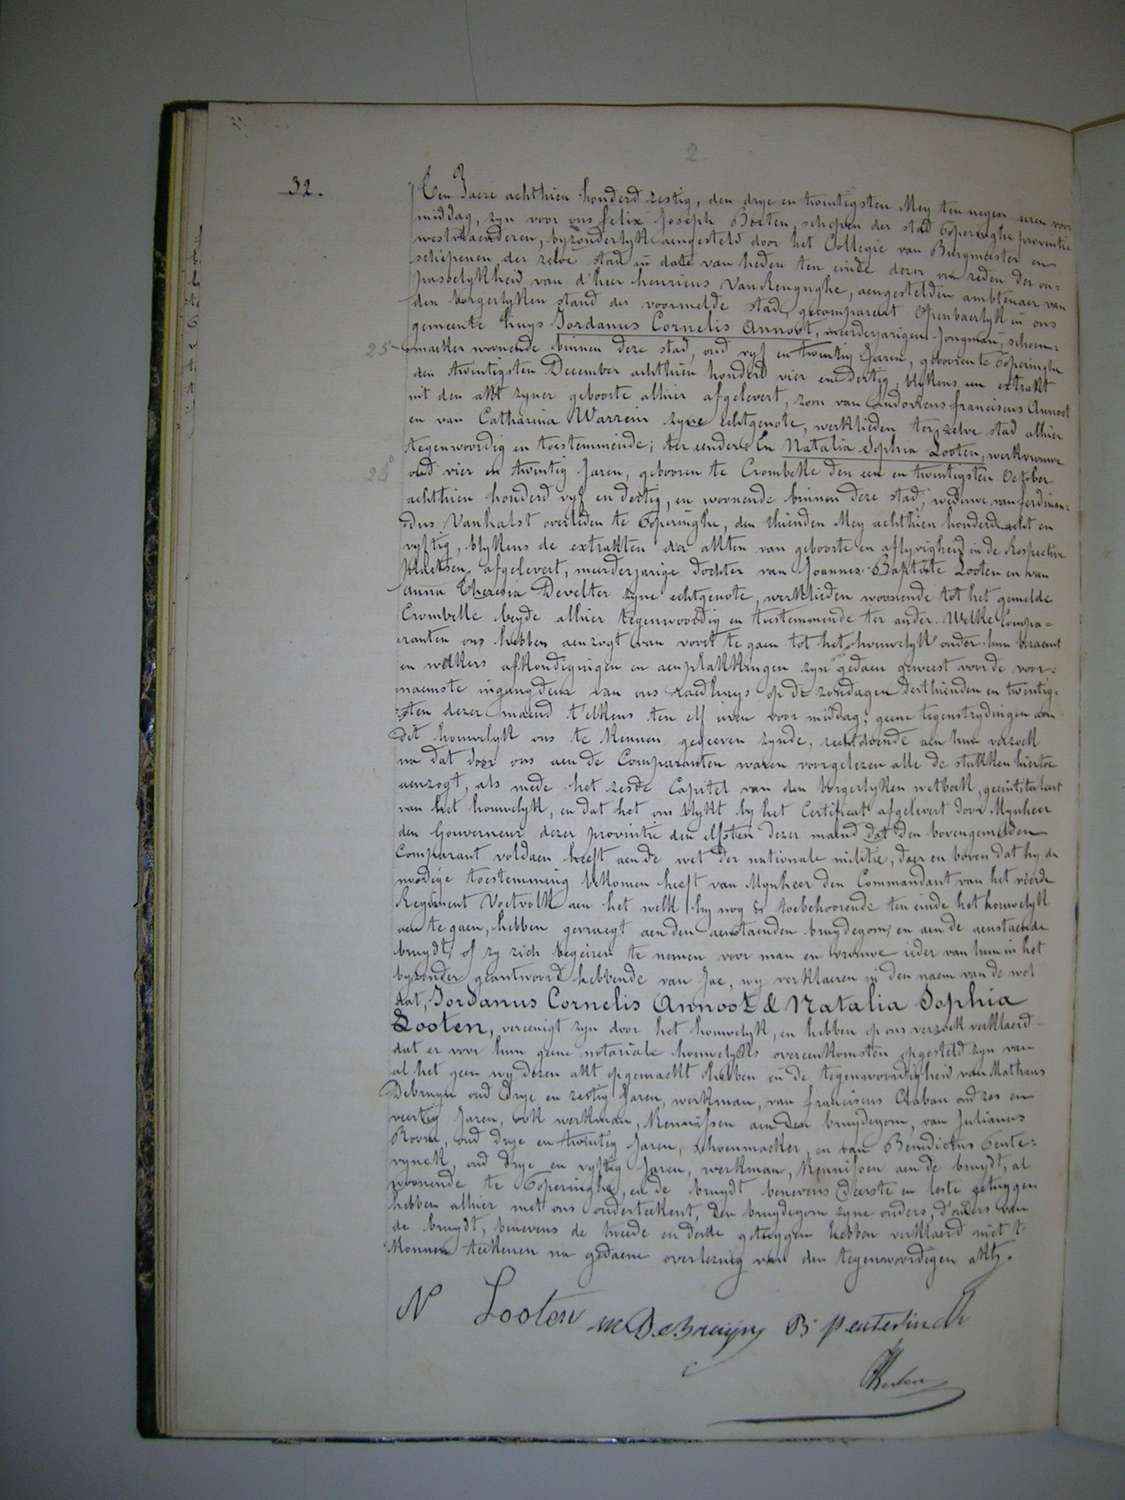 2
32.
Ten Jaere achthien honderd zestig, den drye en twintigsten Mey ten negen uren voor
middag, zyn voor ons Felix Joseph Boeten, schepen der stad Poperinghe provintie
westvlaenderen, byzonderlyk aengesteld door het Collegie van Burgmeester en
schepenen der zelve stad in date van heden ten einde dezer om reden der on-
passelykheid van d'heer henricus Vanrenynghe, aengestelden ambtenaer van
den borgerlyken stand der voormelde stad, gecompareert openbaerlyk in ons
gemeente huys Jordanus Cornelis Annoot, meerderjarigen Jongman, schoen-
25 maeker woonende binnen deze stad, oud vyf en twintig Jaren, geboren te Poperinghe
den twintigsten December achthien honderd vier en dertig, blykens een extrakt
uit den akt zyner geboorte alhier afgelevert, zoon van Ludovicus franciscus Annoot
en van Catharina Warrein zyne echtgenote, werklieden ter zelve stad alhier
tegenwoordig en toestemmende; ter eendere En Natalia Sophia Looten, werkvrouwe
oud vier en twintig Jaren, geboren te Crombeke den een en twintigsten October
achthien honderd vyf en dertig, en woonende binnen deze stad, weduwe van ferdinan-
dus Vanhalst overleden te Poperinghe, den thienden Mey achthien honderd acht en
vyftig, blykens de extrakten der akten van geboorte en aflyvigheid in de Respective
plaetsen afgelevert, meerderjarige dochter van Joannes-Baptiste Looten en van
anna Theresia Develter zyne echtgenote, werklieden woonende tot het gemelde
Crombeke beyde alhier tegenwoordig en toestemmende ter ander. Welke Compa-
ranten ons hebben aenzogt van voort te gaen tot het houwelyk onder hun beraemt
en welkers afkondigingen en aenplakkingen zyn gedaen geweest voor de voor-
naemste ingangdeur van ons raedhuys op de zondagen derthienden en twintig-
sten dezer maend t'elkens ten elf uren voor middag; geene tegenstrydingen aen
dit houwelyk ons te kennen gegeeven zynde, rechtdoende aen hun verzoek
na dat door ons aen de Comparanten waren voorgelezen alle de stukken hiertoe
aenzogt, als mede het zesde Capitel van den borgerlyken wetboek, geintitulaert
van het houwelyk, en dat het ons blykt by het Certificat afgelevert door Mynheer
den Gouverneur dezer provintie den elfsten dezer maend dat den bovengemelden
Comparant voldaen heeft aen de wet der nationale militie, daer en boven dat hy de
noodige toestemming bekomen heeft van Mynheer den Commandant van het vierde
Regiment Voetvolk aen het welk hy nog is toebehoorende ten einde het houwelyk
aen te gaen, hebben gevraegt aen den aenstaenden bruydegom, en aen de aenstaende
bruydt, of zy zich begeiren te nemen voor man en vrouwe ieder van hun in het
byzonder geantwoord hebbende van Jae, wy verklaeren in den naem van de wet
dat, Jordanus Cornelis Annoot & Natalia Sophia
Looten, vereenigt zyn door het houwelyk, en hebben op ons verzoek verklaerd
dat er voor hun geene notariale houwelyks overeenkomsten opgesteld zyn van
al het geen wy dezen akt opgemaekt hebben in de tegenwoordigheid van Matheus
Debruyne oud drye en zestig Jaren, werkman, van franciscus Claban oud zes en
veertig Jaren, ook werkman, kennissen aen den bruydegom, van Julianus
Room, oud drye en twintig Jaren, schoenmaeker, en van Benedictus Pente-
vynck, oud drye en vyftig Jaren, werkman, kennissen aen de bruydt, al
woonende te Poperinghe, en de bruydt benevens d'eerste en leste getuygen
hebben alhier met ons onderteekent, den bruydegom zyne ouders, d'ouders van
de bruydt, benevens de tweede en derde getuygen hebben verklaerd niet te
konnen teekenen na gedaene overlezing van den tegenwoordigen akt.
N Looten M DeBruyne B penterinck